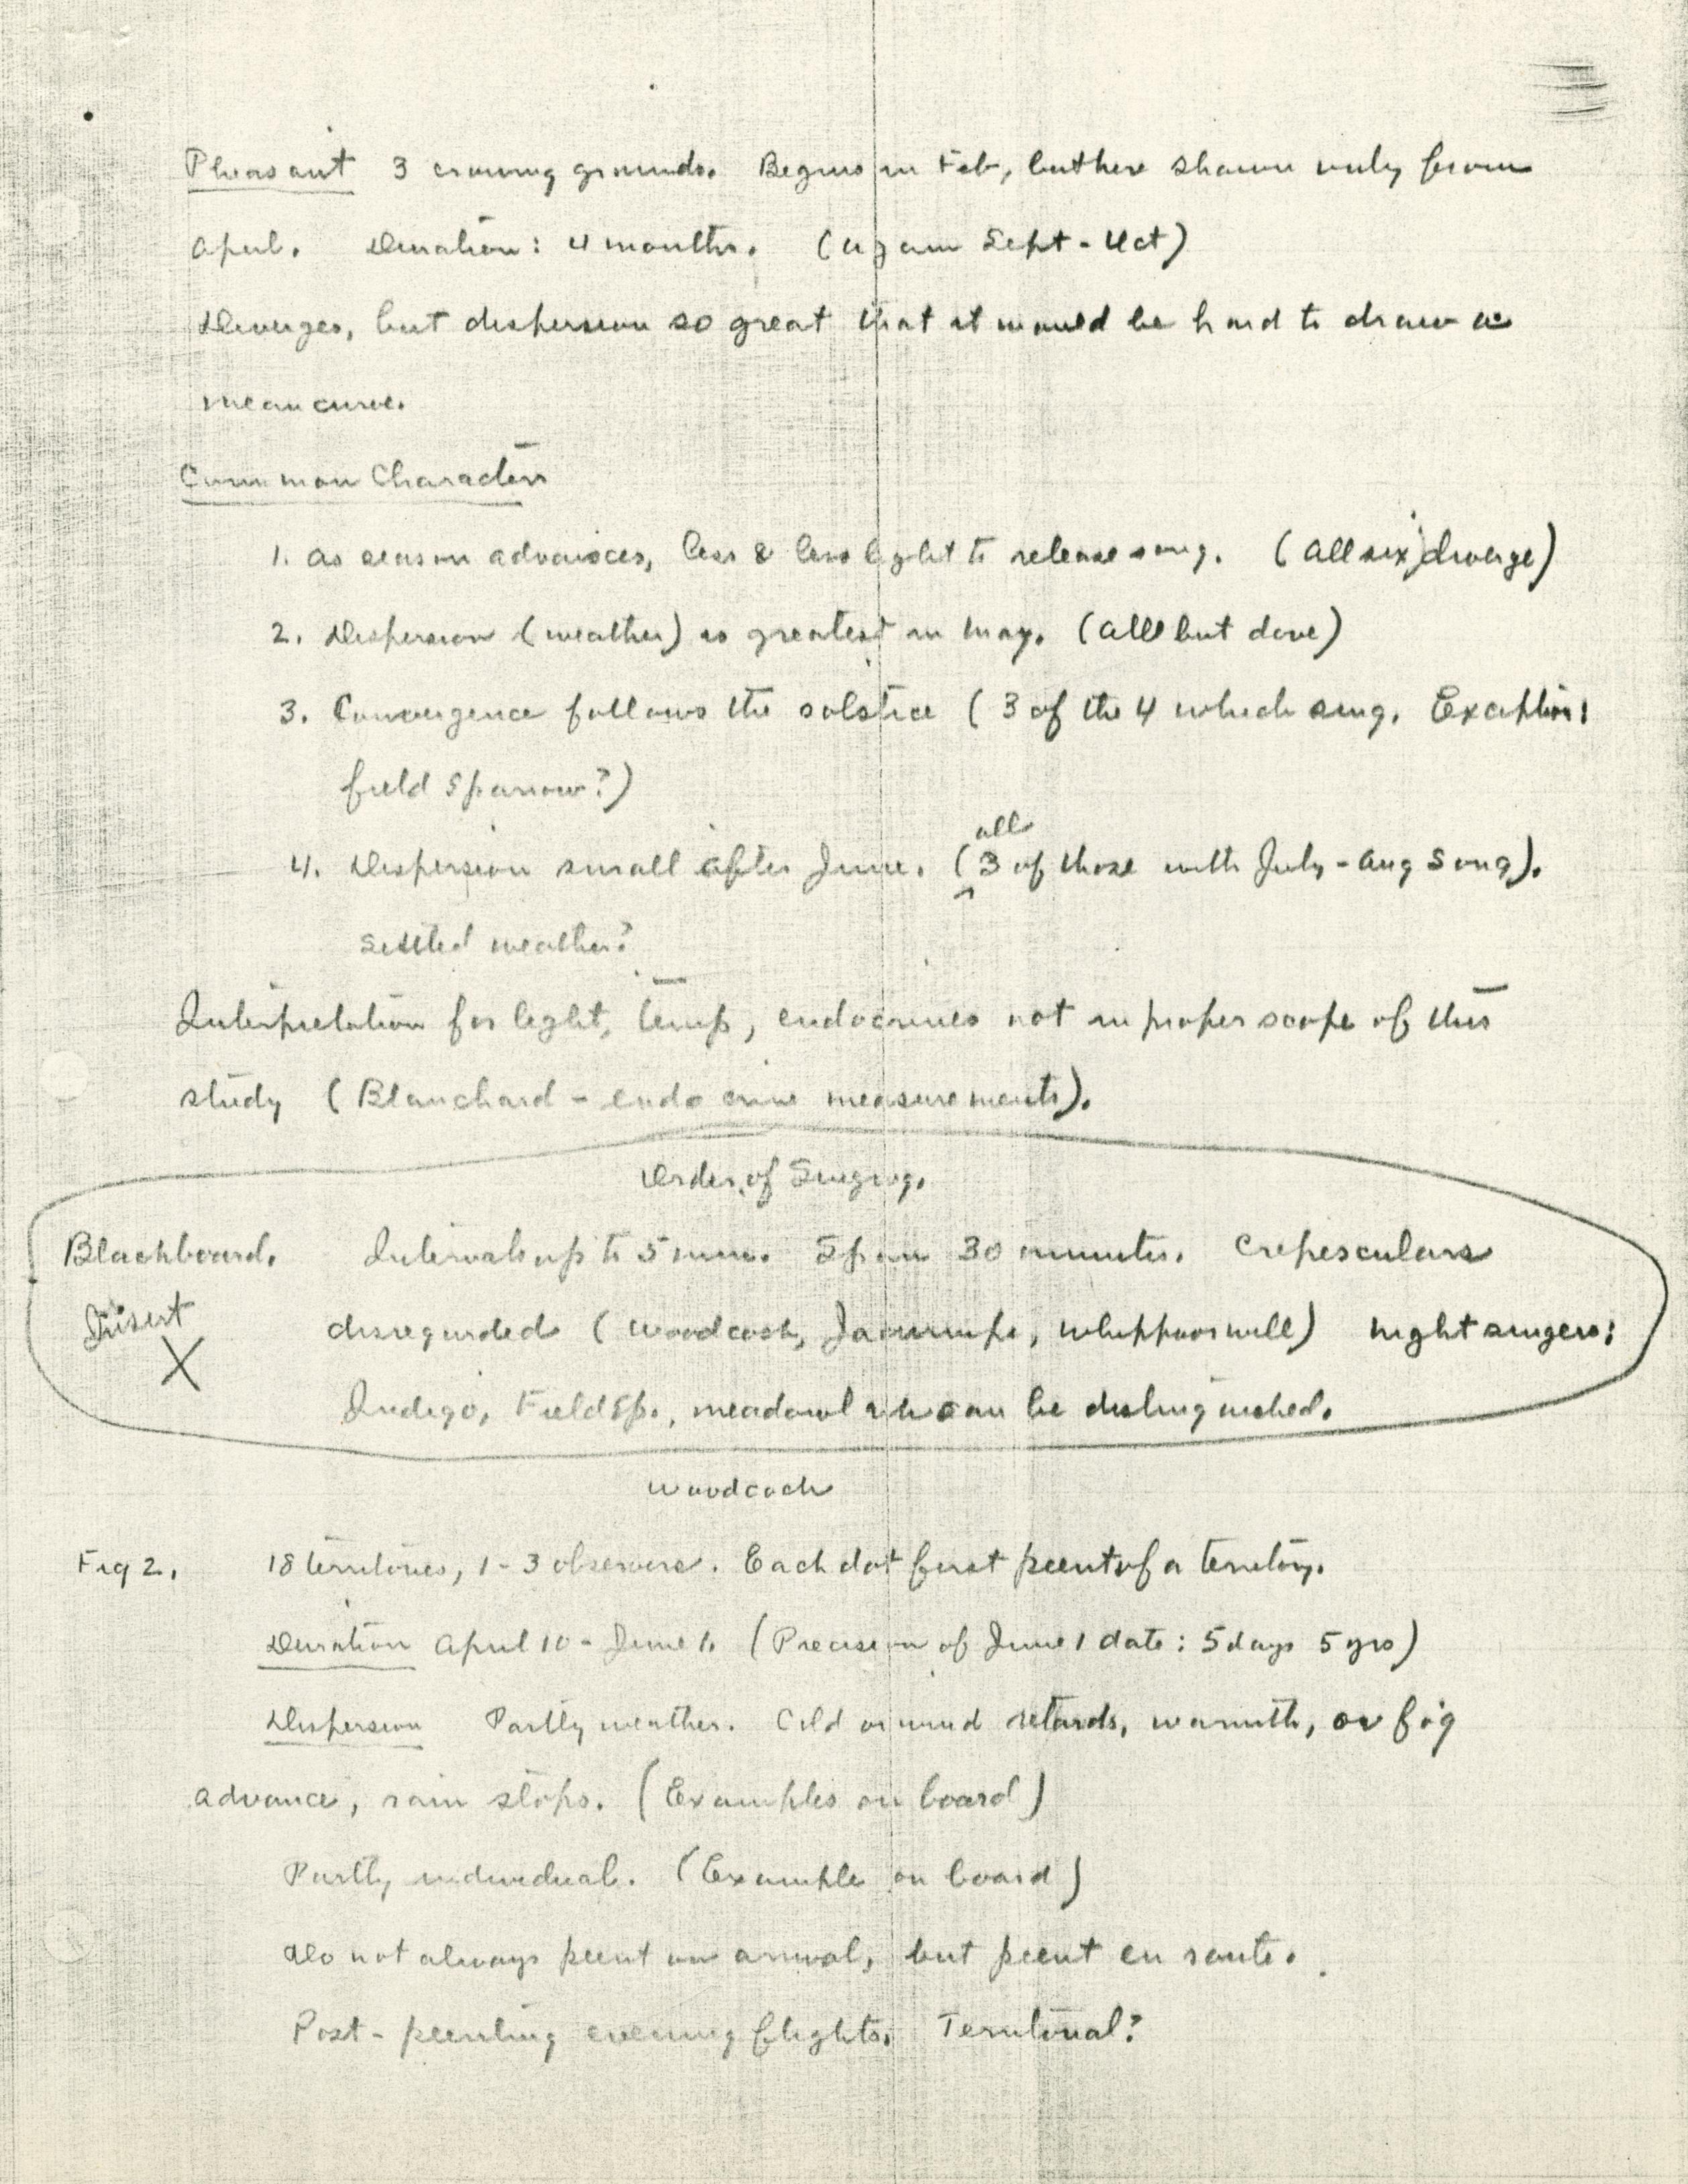 Pheasant 3 crowing grounds. Begins in Feb, but here shown only from
April. Duration: 4 months. (Again Sept - Oct)
Diverges, but dispersion so great that it would be hard to draw a
mean curve.
Common Characters
1. As season advances, less & less light to release song. (All six diverge)
2. Dispersion (weather) is greatest in May. (All but dove)
3. Convergence follows the solstice (3 of the 4 which sing. Exception:
field sparrow?)
all
4. Dispersion small after June. (3 of those with July - Aug song).
Settled weather?
Interpretation for light, temp, endocrines not in proper scope of this
study (Blanchard - endocrine measurements).
Order of Singing.
Blackboard. Intervals up to 5 min. Span 30 minutes. Crepesculars
Insert
disregarded (woodcock, Jacksnipe, whippoorwill) night singers:
X
Indigo, Field Sp., meadowl who can be distinguished.
Woodcock
Fig 2. 18 territories, 1-3 observers. Each dot first peent of a territory.
Duration April 10 - June 1. (Precision of June 1 date: 5 days 5 yrs)
Dispersion Partly weather. Cold or wind retards, warmth, or fog
advance, rain stops. (Examples on board)
Partly individual. (Example on board)
Do not always peent on arrival, but peent en route.
Post-peenting evening flights. Territorial?